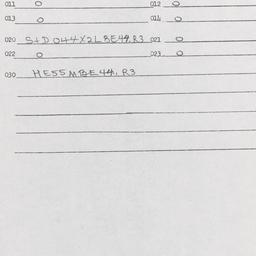 011 0 012 0
013 0 014 0
020 S+D 044X2L BE44.R3 021 0
022 0 023 0
030 HE55MBE44.R3